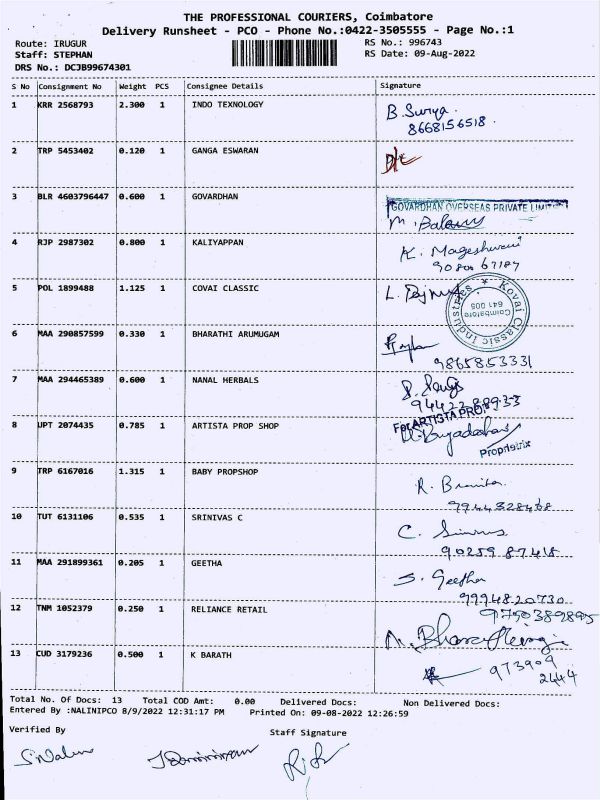 THE PROFESSIONAL COURIERS, Coimbatore
Delivery Runsheet - PCO - Phone No.:0422-3505555 - Page No.:1
Route: IRUGUR RS No.: 996743
Staff: STEPHAN RS Date: 09-Aug-2022
DRS No.: DCJB99674301
S No Consignment No Weight PCS Consignee Details Signature
1 KRR 2568793 2.300 1 INDO TEXNOLOGY
B. Surya.
8668156518.
2 TRP 5453402 0.120 1 GANGA ESWARAN
3 BLR 4603796447 0.600 1 GOVARDHAN
GOVARDHAN OVERSEAS PRIVATE LIMITED
4 RJP 2987302 0.800 1 KALIYAPPAN
K. Mageshwari
5 POL 1899488 1.125 1 COVAI CLASSIC
Kovai Classic Industries. *
Coimbatore
641 005
6 MAA 290857599 0.330 1 BHARATHI ARUMUGAM
9865853331
7 MAA 294465389 0.600 1 NANAL HERBALS
8 UPT 2074435 0.785 1 ARTISTA PROP SHOP
For ARTISTA PRO
Proprietrix
9 TRP 6167016 1.315 1 BABY PROPSHOP
9944328468
10 TUT 6131106 0.535 1 SRINIVAS C
90259 87418
11 MAA 291899361 0.205 1 GEETHA
S. Geetha
9994820730
12 TNM 1052379 0.250 1 RELIANCE RETAIL
9750389895
13 CUD 3179236 0.500 1 K BARATH
973909
2444
Total No. Of Docs: 13 Total COD Amt: 0.00 Delivered Docs: Non Delivered Docs:
Entered By :NALINIPCO 8/9/2022 12:31:17 PM Printed On: 09-08-2022 12:26:59
Verified By Staff Signature